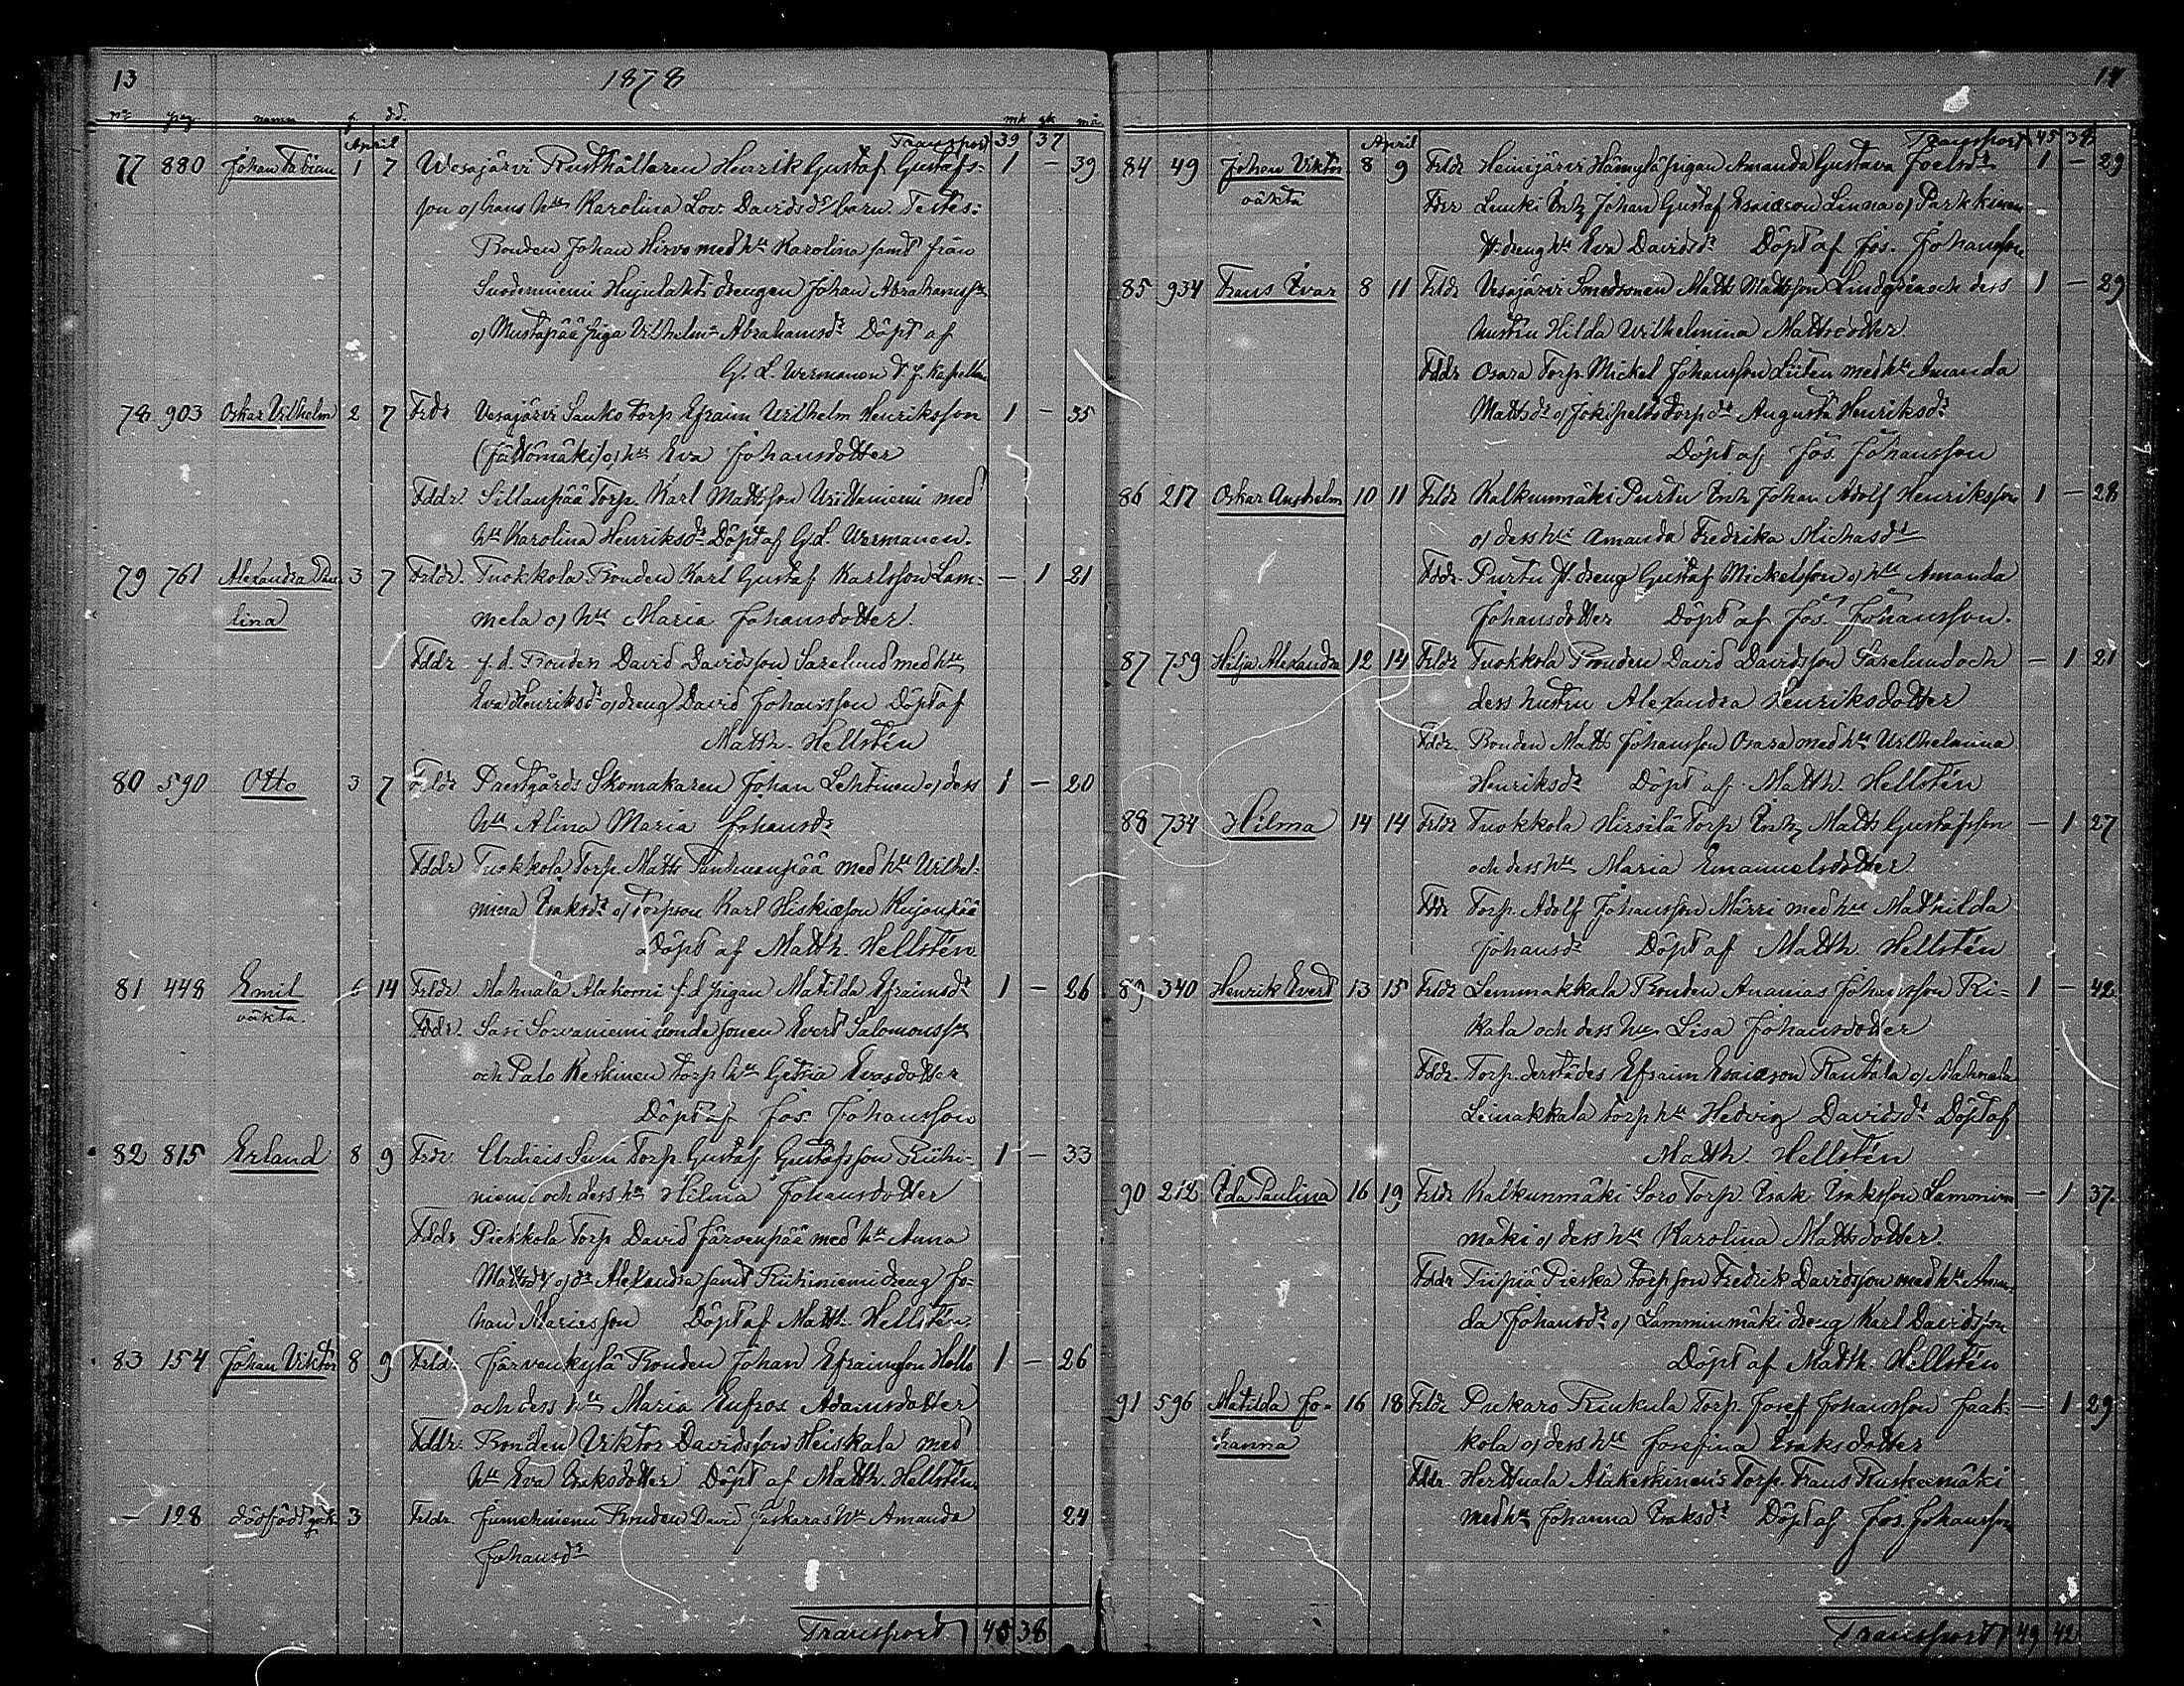 13 1878
No pag namn f. dd. mk qk mo
April Transport 39 37
77 880 Johan Fabian 1 7 Wesajärvi Rusthållaren Henrik Gustaf Gustafs- 1 — 39
son o/ hans hu Karolina Lov. Davidsdr barn. Testes:
Bonden Johan Hirvo med hu Karolina samt från
Suodenniemi Hujulahti drengen Johan Abrahamsson
o/ Mustapää piga Vilhelma Abrahamsdr Döpt af
G. L. Wermanen v. f. Kapellan
78 903 Oskar Vilhelm 2 7 Frldr Vesajärvi Sauko Torp Efraim Vilhelm Henriksson 1 — 35
(Jättömäki) o/ hu Eva Johansdotter
Fddr Sillanpää Torp. Karl Mattsson Uittaniemi med
hu Karolina Henriksdr Döpt af G. L. Wermanen.
79 761 Alexandra Pau 3 7 Frldr. Tuokkola Bonden Karl Gustaf Karlsson Lam- — 1 21
lina mela o/ hu Maria Johansdotter.
Fddr f.d. Bonden David Davidsson Saxelund med hu
Eva Henriksdr o/ dreng David Johansson Döpt af
Matth. Hellstén
80 590 Otto 3 7 Frldr Prestgårds Skomakaren Johan Lehtinen o/ dess 1 — 20
hu Alina Maria Johansdr
Fddr Tuokkola Torp. Matts Tanhuenpää med hu Wilhel-
mina Isaksdr o/ Torpson Karl Hiskiæson Kujanpää
Döpt af Matth. Hellstén.
81 448 Emil 6 14 Frldr Mahnala Alahomi f.d pigan Matilda Efraimsdr 1 — 26
oäkta. Fddr. Sasi Sorvaniemi bondesonen Evert Salomonsson
och Palo Keskinen Torp hu Getria Evasdotter
Döpt af Jos. Johansson
82 815 Erland 8 9 Frdr. Urdiais Suni Torp. Gustaf Gustafsson Riihi- 1 — 33
niemi och dess hu Hilma Johansdotter
Fddr Piekkola Torp David Järvenpää med hu Anna
Mattsdr o/ dr Alexandra samt Riihiniemi dreng Jo-
han Mariesson Döpt af Matth. Hellstén.
83 154 Johan Viktor 8 9 Frldr. Järvenkylä Bonden Johan Efraimson Hollo 1 — 26
och dess hu Maria Eufros Adamsdotter
Fddr. Bonden Viktor Davidsson Heiskala med
hu Eva Isaksdotter Döpt af Matth. Hellstén.
— 128 dödfödt 3 Frldr. Jumesniemi Bonden David Jaskaras hu Amanda 24
Johansdr
Transport 45 38
14
April Transport 45 38
84 49 Johan Viktor 8 9 Frldr Heinijärvi Hämylä pigan Amanda Gustava Joelsdr 1 — 29
oäkta Fddr Lemki Inh Johan Gustaf Esaiæson Linna o/ Parkkinen
H. dreng hu Eva Davidsdr Döpt af Jos. Johansson
85 934 Frans Ivar 8 11 Frldr Vesajärvi Smedsonen Matts Mattsson Lindgrén och dess 1 — 29
hustru Hilda Wilhelmina Mattsdotter
Fddr Osara Torp. Mickel Johansson Liiten med hu Amanda
Mattsdr o/ Jokipelto torp dr Augusta Henriksdr
Döpt af Jos. Johansson
86 217 Oskar Anshelm 10 11 Frldr Kalkunmäki Purtu Inh Johan Adolf Henriksson 1 — 28
o/ dess hu Amanda Fredrika Michasdr
Fddr. Purtu H. dreng Gustaf Mickelsson o/ hu Amanda
Johansdotter Döpt af Jos. Johansson.
87 759 Hilja Alexandra 12 14 Frldr Tuokkola Bonden David Davidsson Saxelund och — 1 21
dess hustru Alexandra Henriksdotter
Fddr. Bonden Matts Johansson Osara med hu Vilhelmina
Henriksdr Döpt af Matth. Hellstén
88 734 Hilma 14 14 Frldr Tuokkola Hirsilä Torp Inh Matts Gustafsson — 1 27
och dess hu Maria Emanuelsdotter.
Fddr Torp. Adolf Johansson Märri med hu Mathilda
Johansdr Döpt af Matth. Hellstén
89 340 Henrik Evert 13 15 Frldr Lemmakkala Bonden Ananias Johansson Ri- 1 — 42.
kala och dess hu Lisa Johansdotter
Fddr. Torp. derstädes Efraim Esaiæson Rautala o/ Mahnala
Leinakkala torp hu Hedvig Davidsdr Döpt af
Matth. Hellstén
90 212 Ida Paulina 16 19 Frldr Kalkunmäki Soro Torp. Isak Isaksson Lamminm — 1 37.
mäki o/ dess hu Karolina Mattsdotter.
Fddr Tiipiä Pieska Torpson Fredrik Davidsson med hu Aman
da Johansdr o/ Lamminmäki dreng Karl Davidsson
Döpt af Matth. Hellstén
91 596 Matilda Jo- 16 18 Frldr Pukaro Rinkula Torp. Josef Johansson Jaak- — 1 29
hanna kola o/ dess hu Josefina Isaksdotter
Fddr. Herttuala Alakeskinen's Torp. Frans Ruskeemäki
med hu Johanna Isaksdr Döpt af Jos. Johansson
Transport 49 42